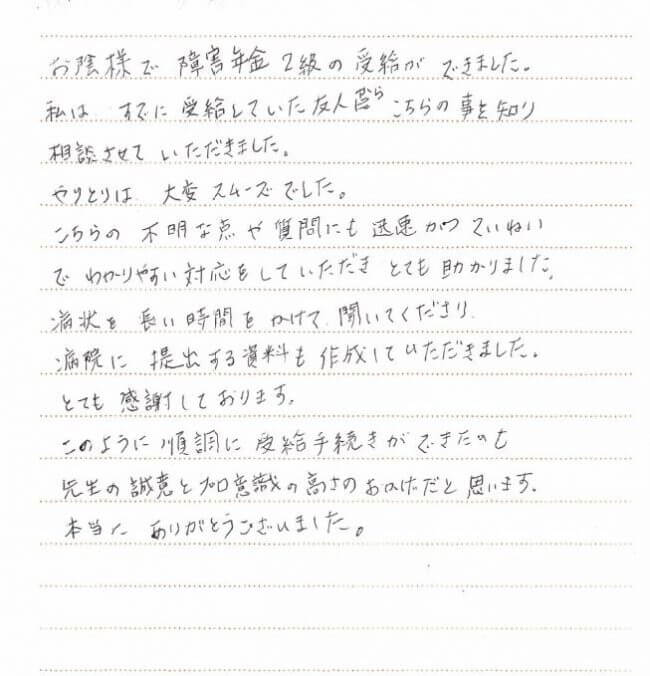 お陰様で 障害年金2級の受給ができました。
私は すでに受給していた友人から こちらの事を知り
相談させて いただきました。
やりとりは 大変スムーズでした。
こちらの 不明な点や質問にも 迅速かつていねい
で わかりやすい対応をしていただき とても助かりました。
病状を 長い時間をかけて、聞いてくださり、
病院に 提出する資料も作成していただきました。
とても 感謝しております。
このように順調に 受給手続きができたのも
先生の誠意とプロ意識の高さのおかげだと思います。
本当に ありがとうございました。